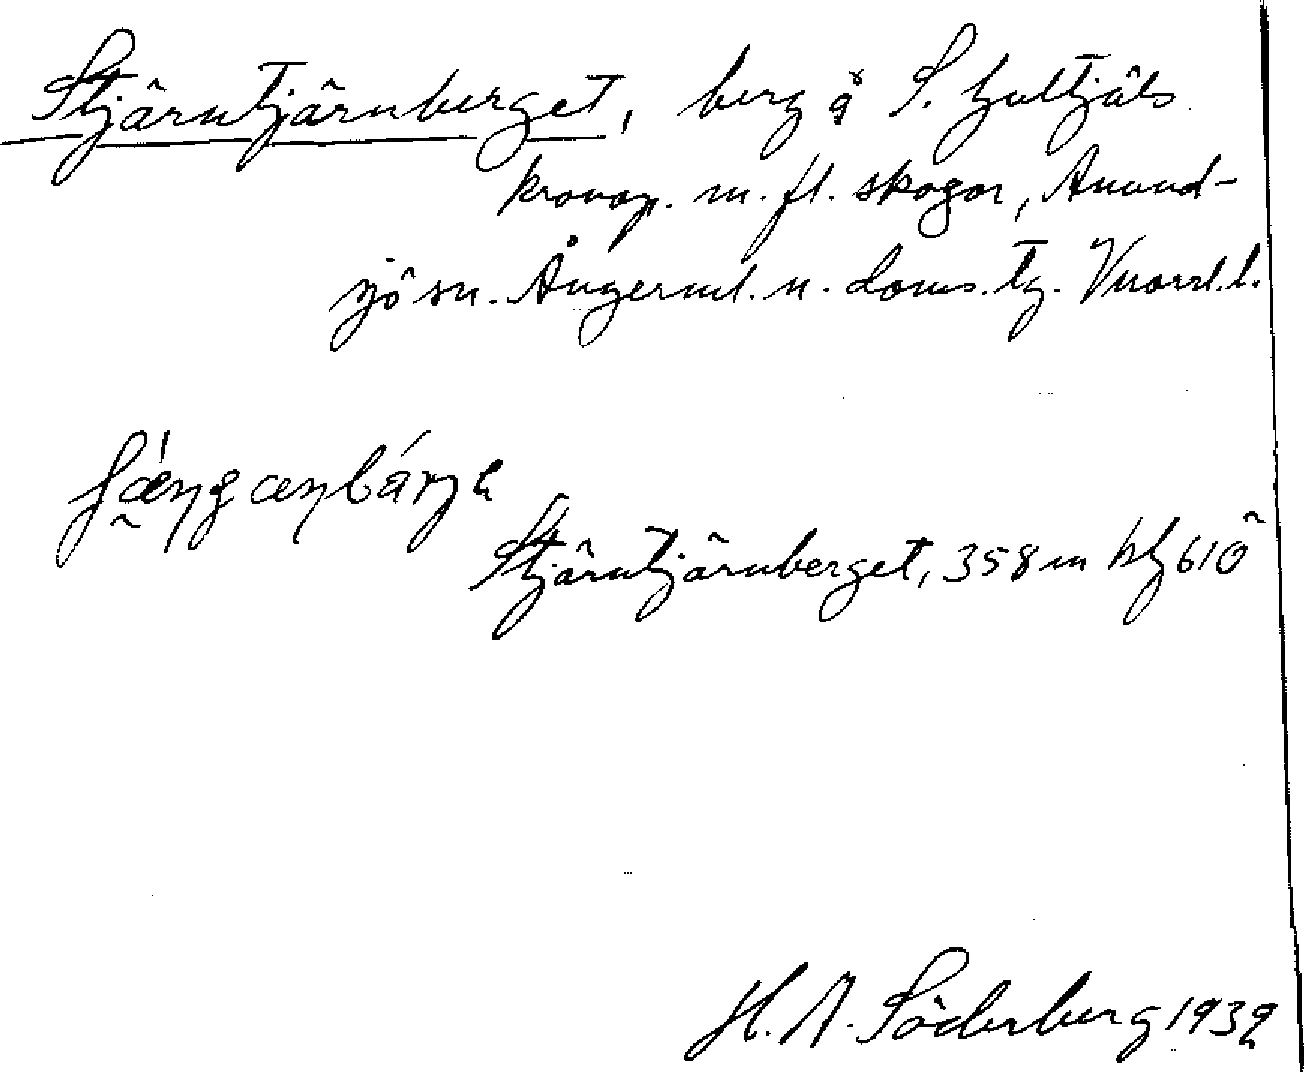 Stjärntjärnberget, berg å S. Gultjäls
kronop. m. fl. skogar, Anund-
sjö sn. Ångerml. n. doms. tg. Vnorrl. l.
Stjärntjärnberget, 358 m hg 610
H. A. Söderberg 1932